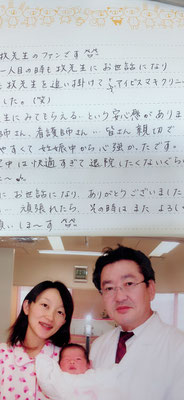 牧先生のファンです
一人目の時も牧先生にお世話になり
も牧先生を追い掛けてアイビスマキクリニ
した。(笑)
生にみてもらえる、という安心感がありま
師さん、看護師さん、皆さん親切で
やすくて妊娠中から心強かったです。
中は快適すぎて退院したくないぐら
に お世話になり、ありがとうございました
、頑張れたら、その時はまた よろし
願いしま〜す